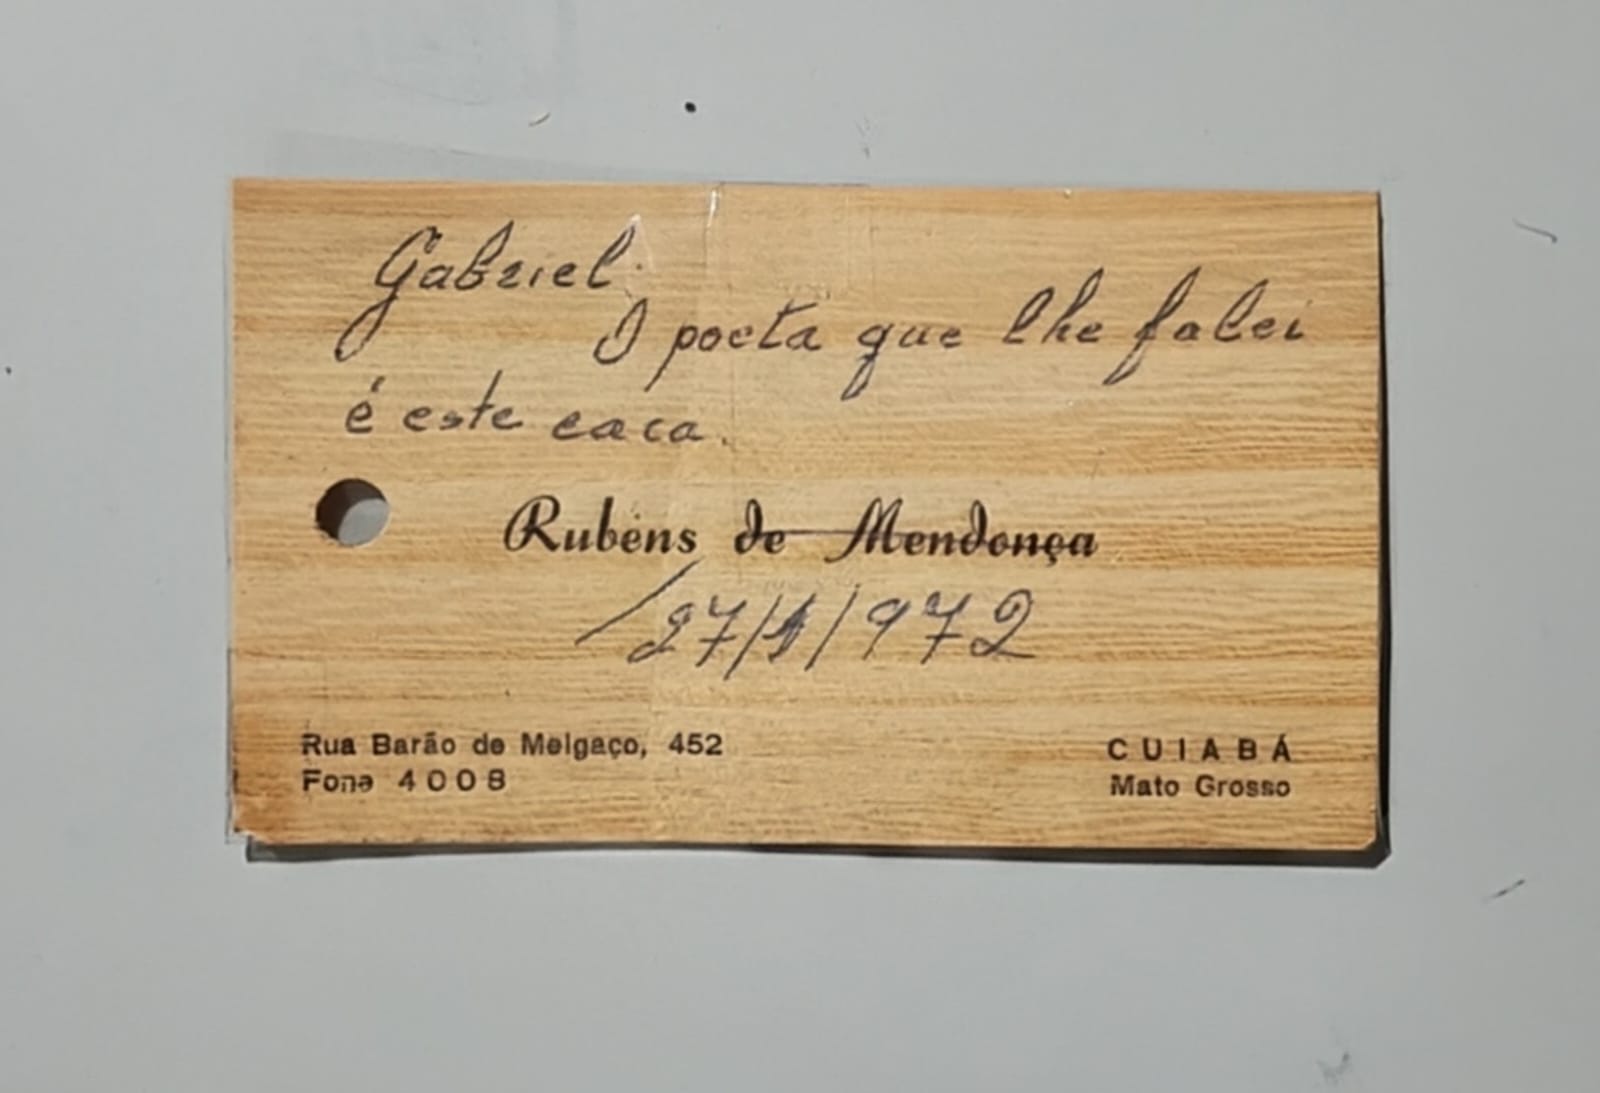 Gabriel.
O poeta que lhe falei
é este caca.
Rubens de Mendonça
27/1/972
Rua Barão de Melgaço, 452
Fone 4008
CUIABÁ
Mato Grosso